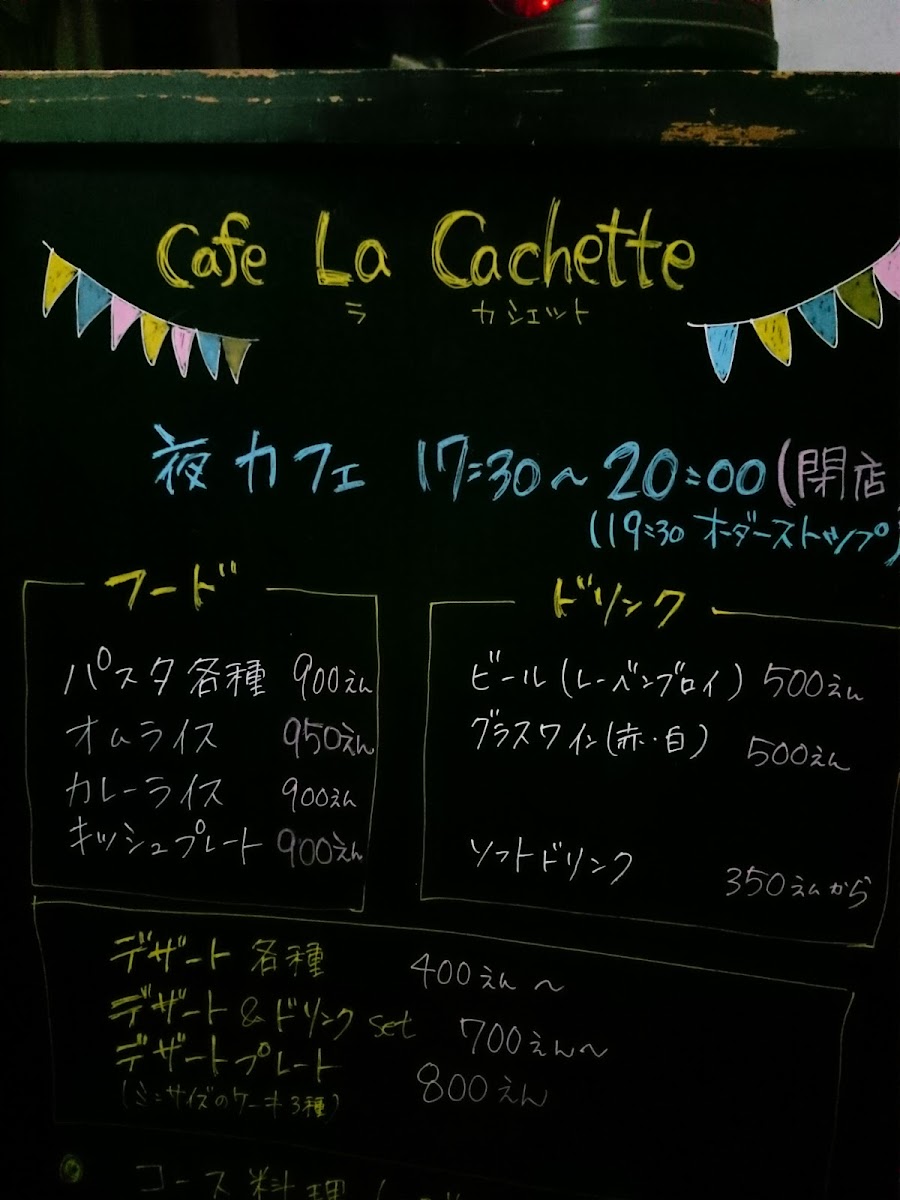 Cafe La Cachette
ラ カシェット
夜カフェ 17:30～20:00(閉店
(19:30 オーダーストップ)
フード
パスタ各種 900えん
オムライス 950えん
カレーライス 900えん
キッシュプレート 900えん
ドリンク
ビール(レーベンブロイ) 500えん
グラスワイン(赤・白) 500えん
ソフトドリンク 350えんから
デザート各種 400えん～
デザート&ドリンクset 700えん～
デザートプレート 800えん
(ミニサイズのケーキ3種)
コース料理